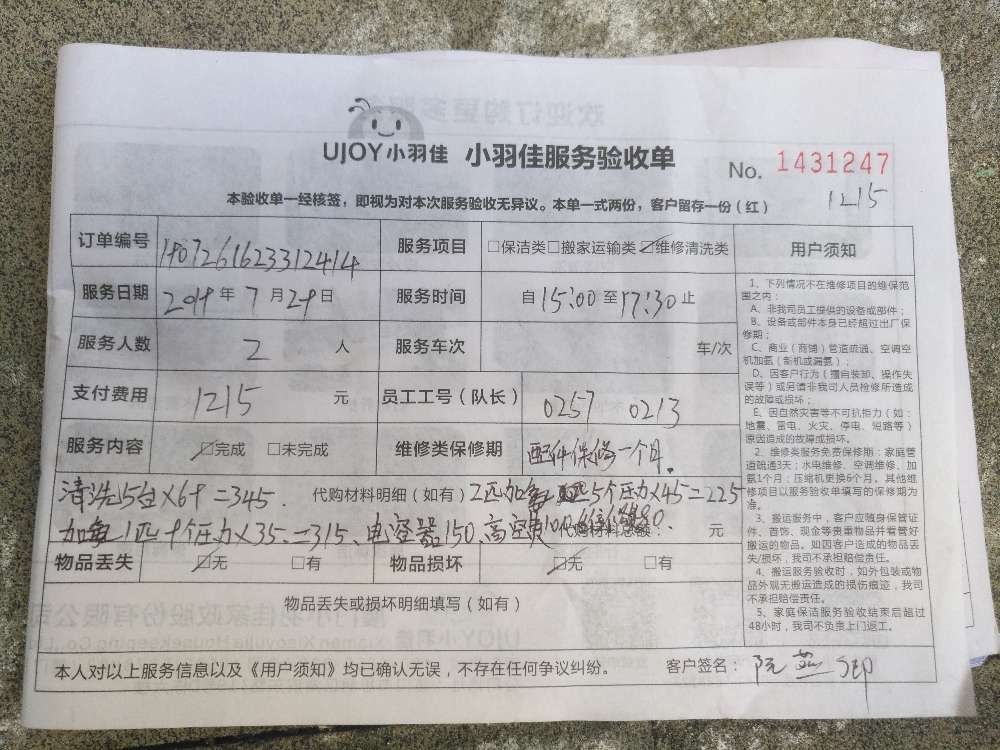 UJOY小羽佳 小羽佳服务验收单
No. 1431247
1215
本验收单一经核签，即视为对本次服务验收无异议。本单一式两份，客户留存一份（红）
订单编号 服务项目 □保洁类□搬家运输类☑维修清洗类
服务日期 年7月29日 服务时间 自15:00至17:30止
服务人数 2 人 服务车次 车/次
支付费用 1215 元 员工工号（队长） 0257 0213
服务内容 ☑完成 □未完成 维修类保修期 配件保修一个月.
清洗 代购材料明细（如有） 5个压力×45=225
个压力×35=315、电容器150、高空费 代购材料总额： 元
物品丢失 ☑无 □有 物品损坏 ☑无 □有
物品丢失或损坏明细填写（如有）
本人对以上服务信息以及《用户须知》均已确认无误，不存在任何争议纠纷。 客户签名：
用户须知
1、下列情况不在维修项目的维保范
围之内：
A、非我司员工提供的设备或部件；
B、设备或部件本身已经超过出厂保
修期；
C、商业（商铺）管道疏通、空调空
机加氨（新机或漏氨）；
D、因客户行为（擅自装卸、操作失
误等）或另请非我司人员检修所造成
的故障或损坏；
E、因自然灾害等不可抗拒力（如：
地震、雷电、火灾、停电、短路等）
原因造成的故障或损坏。
2、维修类服务免费保修期：家庭管
道疏通3天；水电维修、空调维修、加
氨1个月；压缩机更换6个月。其他维
修项目以服务验收单填写的保修期为
准。
3、搬运服务中，客户应随身保管证
件、首饰、现金等贵重物品并看管好
搬运的物品。如因客户造成的物品丢
失/损坏，我司不承担赔偿责任。
4、搬运服务验收时，如外包装或物
品外观无搬运造成的损伤痕迹，我司
不承担赔偿责任。
5、家庭保洁服务验收结束后超过
48小时，我司不负责上门返工。